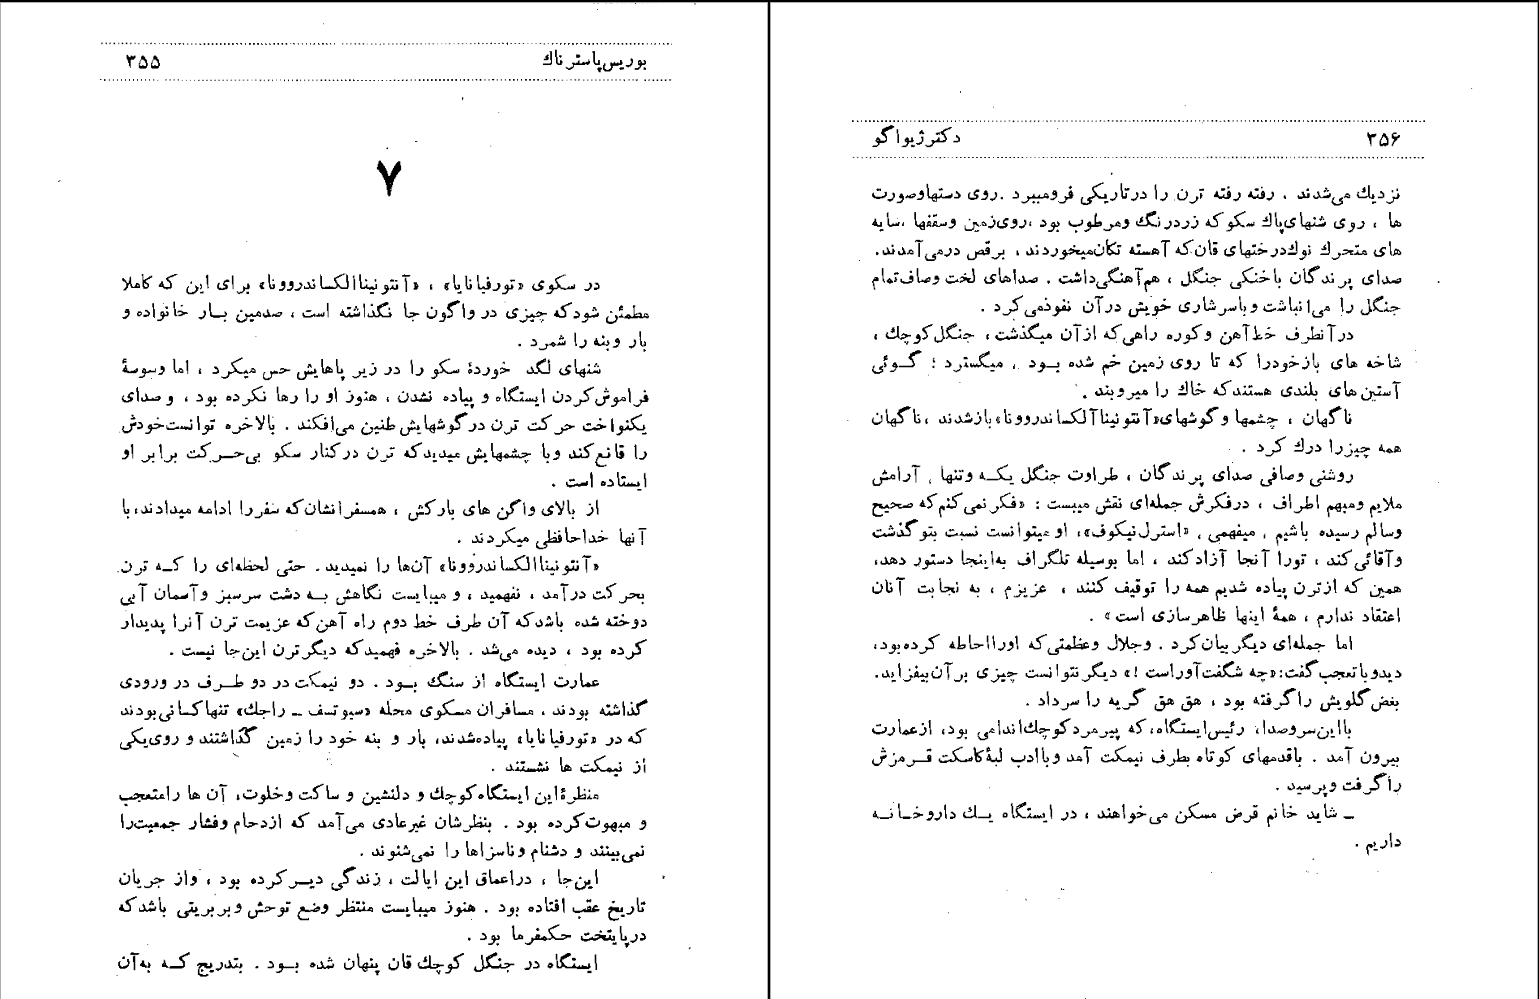 بوریس‌پاسترناك
۳۵۵
۷
در سکوی «تورفیانایا» ، «آنتونیناالکساندروونا» برای این که کاملا
مطمئن شودکه چیزی در واگون جا نگذاشته است ، صدمین بـار خانواده و
بار وبنه را شمرد .
شنهای لگد خوردهٔ سکو را در زیر پاهایش حس میکرد ، اما وسوسهٔ
فراموش‌کردن ایستگاه و پیاده نشدن ، هنوز او را رها نکرده بود ، و صدای
یکنواخت حرکت ترن درگوشهایش طنین می‌افکند . بالاخره توانست‌خودش
را قانع‌کند وبا چشمهایش میدیدکه ترن درکنار سکو بی‌حـرکت برابر او
ایستاده است .
از بالای واگن های بارکش ، همسفرانشان‌که سفررا ادامه میدادند،با
آنها خداحافظی میکردند .
«آنتونیناالکساندروونا» آن‌ها را نمیدید . حتی لحظه‌ای را کـه ترن
بحرکت درآمد ، نفهمید ، و میبایست نگاهش بـه دشت سرسبز وآسمان آبی
دوخته شده باشدکه آن طرف خط دوم راه آهن‌که عزیمت ترن آنرا پدیدار
کرده بود ، دیده می‌شد . بالاخره فهمیدکه دیگرترن این‌جا نیست .
عمارت ایستگاه از سنگ بـود . دو نیمکت در دو طـرف در ورودی
گذاشته بودند ، مسافران مسکوی محله «سیوتسف ـ راجك» تنهاکسانی‌بودند
که در «تورفیانایا» پیاده‌شدند، بار و بنه خود را زمین گذاشتند و روی‌یکی
از نیمکت ها نشستند .
منظرهٔ‌این ایستگاه‌کوچك و دلنشین و ساکت وخلوت، آن ها رامتعجب
و مبهوت‌کرده بود . بنظرشان غیرعادی می‌آمد که ازدحام وفشار جمعیت‌را
نمی‌بینند و دشنام وناسزاها را نمی‌شنوند .
این‌جا ، دراعماق این ایالت ، زندگی دیـرکرده بود ، واز جریان
تاریخ عقب افتاده بود . هنوز میبایست منتظر وضع توحش وبربریتی باشدکه
درپایتخت حکمفرما بود .
ایستگاه در جنگل کوچك قان پنهان شده بـود . بتدریج کـه به‌آن
۳۵۶
دکترژیواگو
نزدیك می‌شدند ، رفته رفته ترن را درتاریکی فرومیبرد .روی دستهاوصورت
ها ، روی شنهای‌پاك سکو که زردرنگ ومرطوب بود ،روی‌زمین وسقفها ،سایه
های متحرك نوك‌درختهای قان‌که آهسته تکان‌میخوردند ، برقص درمی‌آمدند.
صدای پرندگان باخنکی جنگل ، هم‌آهنگی‌داشت . صداهای لخت وصاف‌تمام
جنگل را می‌انباشت وباسرشاری خویش درآن نفوذمی‌کرد .
درآنطرف خط‌آهن وکوره راهی‌که ازآن میگذشت، جنگل‌کوچك ،
شاخه های بازخودرا که تا روی زمین خم شده بـود ، میگسترد ؛ گـوئی
آستین‌های بلندی هستندکه خاك را میروبند .
ناگهان ، چشمها وگوشهای«آنتونیناآلکساندروونا»بازشدند ،ناگهان
همه چیزرا درك کرد .
روشنی وصافی صدای پرندگان ، طراوت جنگل یکـه وتنها ، آرامش
ملایم ومبهم اطراف ، درفکرش جمله‌ای نقش میبست : «فکر نمی‌کنم‌که صحیح
وسالم رسیده باشیم ، میفهمی ، «استرل‌نیکوف»، او میتوانست نسبت بتوگذشت
وآقائی‌کند ، تورا آنجا آزادکند ، اما بوسیله تلگراف به‌اینجا دستور دهد،
همین که ازترن پیاده شدیم همه را توقیف کنند ، عزیزم ، به نجابت آنان
اعتقاد ندارم ، همهٔ اینها ظاهرسازی است» .
اما جمله‌ای دیگر بیان‌کرد . وجلال وعظمتی‌که اورااحاطه کرده‌بود،
دیدوباتعجب گفت:«چه شگفت‌آوراست !» دیگر نتوانست چیزی برآن‌بیفزاید.
بغض‌گلویش راگرفته بود ، هق هق گریه را سرداد .
بااین‌سروصدا، رئیس‌ایستگاه، که پیرمردکوچك‌اندامی بود، ازعمارت
بیرون آمد . باقدمهای کوتاه بطرف نیمکت آمد وباادب لبهٔ‌کاسکت قـرمزش
راگرفت وپرسید .
ـ شاید خانم قرض مسکن می‌خواهند ، در ایستگاه یـك داروخـانـه
داریم .